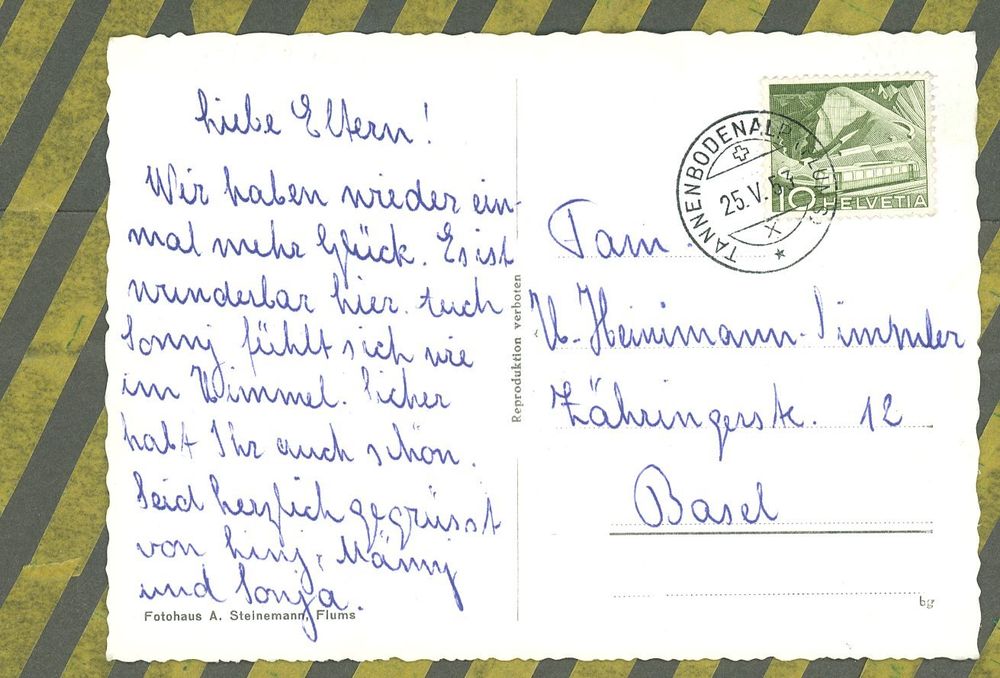 Liebe Eltern!
Wir haben wieder ein-
mal mehr Glück. Es ist
wunderbar hier. Auch
Sonnj fühlt sich wie
im Himmel. Sicher
habt Ihr auch schön.
Seid herzlich gegrüsst
von Linj, Männj
und Sonja.
Fotohaus A. Steinemann, Flums
Reproduktion verboten
TANNENBODENALP (FLUMS)
25.V.53
X
10 HELVETIA
Fam.
Heinimann-Simmler
Zähringerstr. 12
Basel
bg